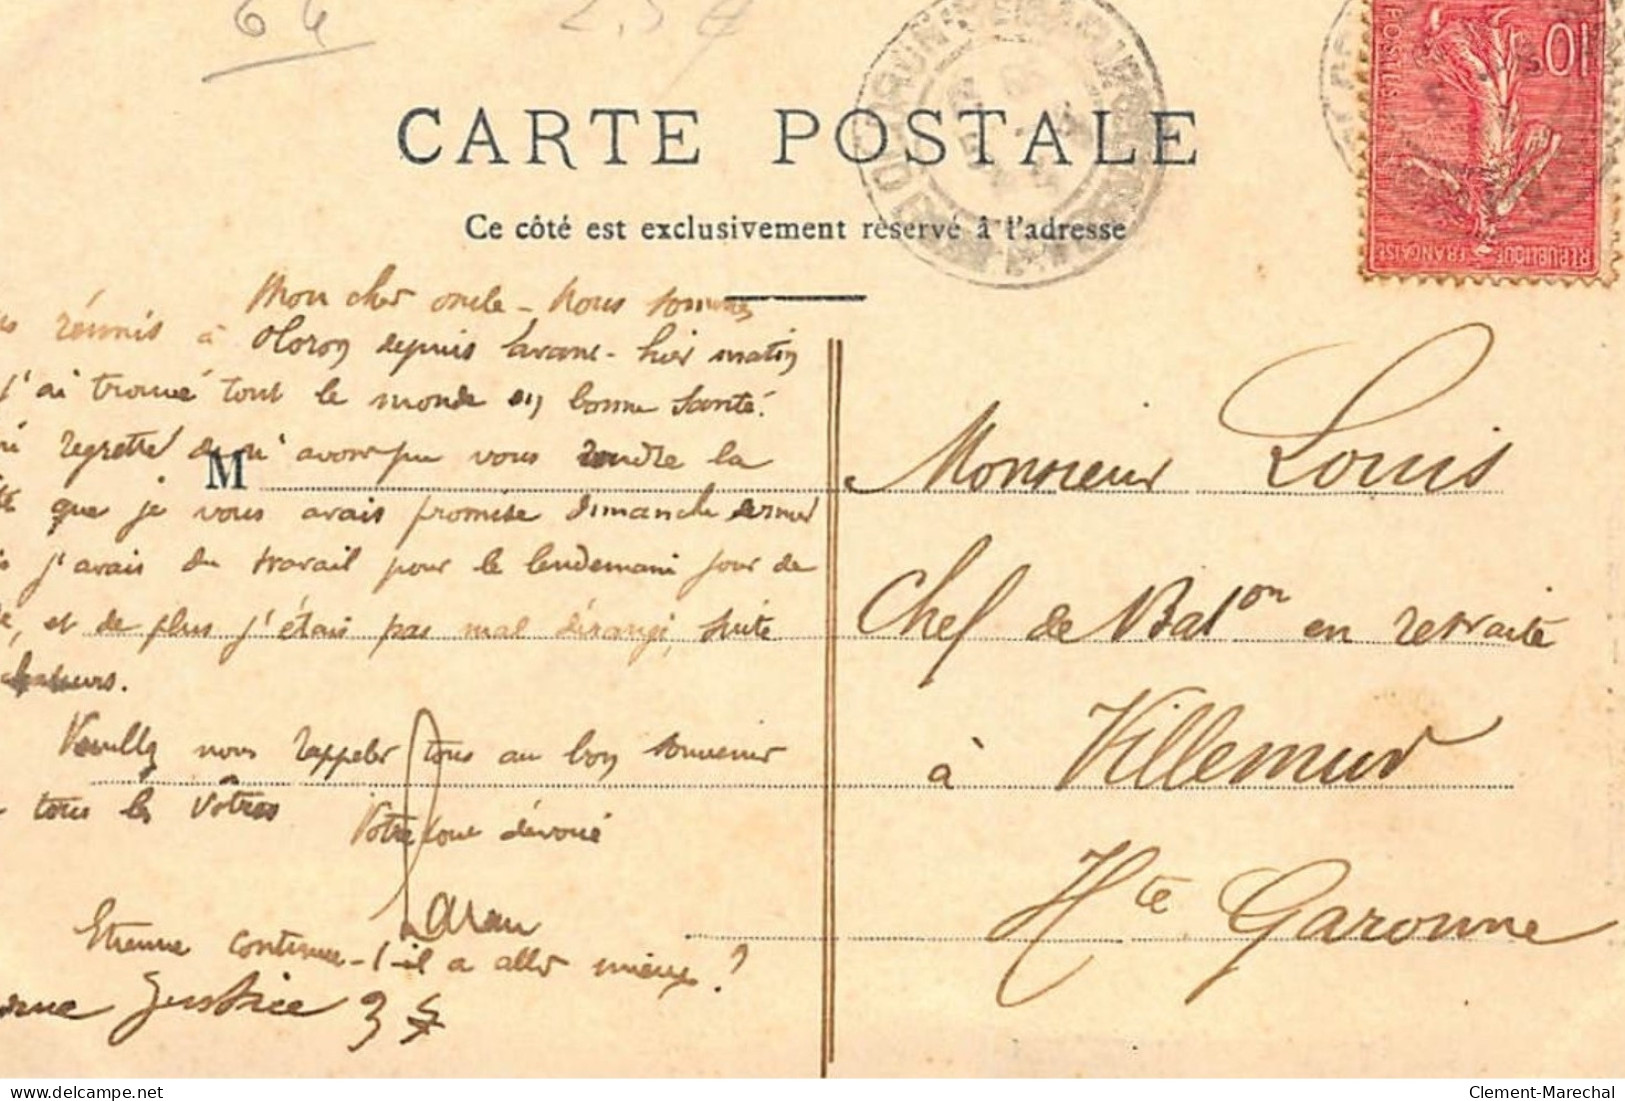 64
CARTE POSTALE
Ce côté est exclusivement réservé à l'adresse
10
POSTES
REPUBLIQUE FRANÇAISE
Mon cher oncle - Nous sommes
réunis à Oloron depuis avant-hier matin
j'ai trouvé tout le monde en bonne santé.
regretté de n'avoir pu vous rendre la
que je vous avais promise dimanche dernier
j'avais du travail pour le lendemain jour de
et de plus j'étais pas mal dérangé, suite
chaleurs.
Veuillez nous rappeler tous au bon souvenir
tous les vôtres
Votre tout dévoué
Etienne continue-t-il a aller mieux ?
rue Justice 37
M
Monsieur Louis
Chef de Baton en retraite
à Villemur
Hte Garonne
delcampe.net
Clement-Marechal